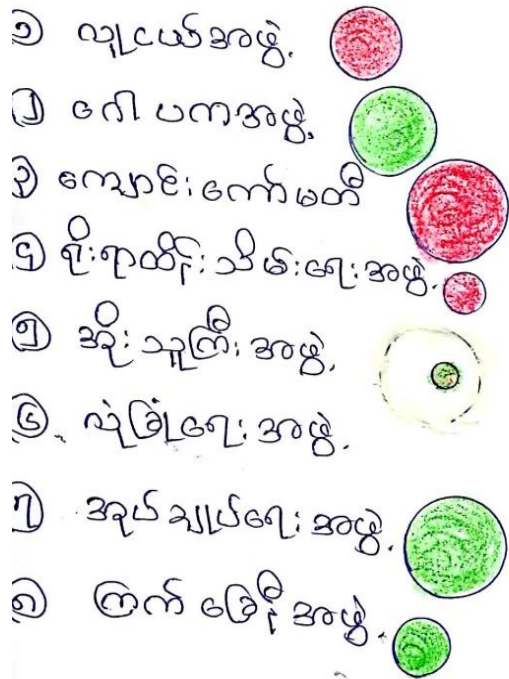 ၁ လူငယ်အဖွဲ့.
၂ ဂေါပကအဖွဲ့.
၃ ကျောင်းကော်မတီ
၄ ရိုးရာထိန်းသိမ်းရေးအဖွဲ့.
၅ အိုးသူကြီးအဖွဲ့.
၆. လုံခြုံရေးအဖွဲ့.
၇ အုပ်ချုပ်ရေးအဖွဲ့.
၈ ကြက်ခြေနီအဖွဲ့.